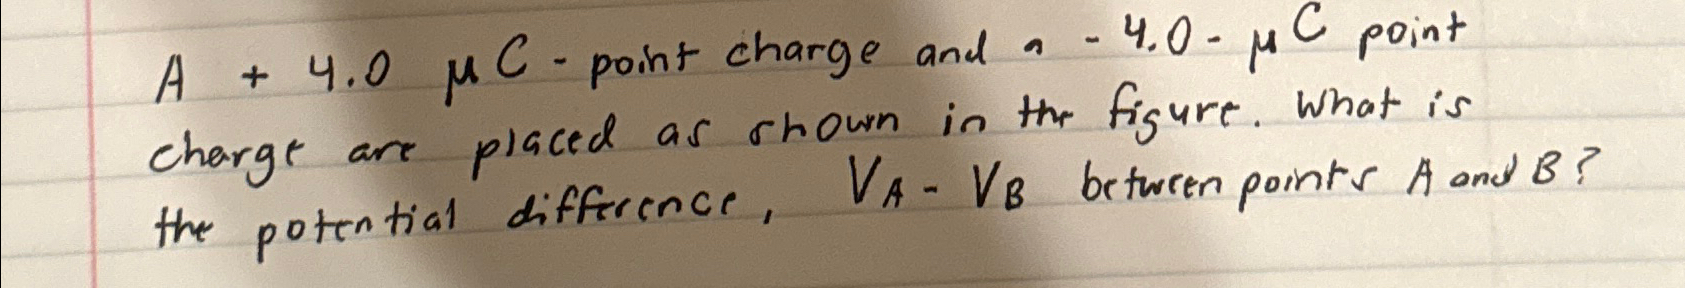 A + 4.0 μC - point charge and a - 4.0 - μC point
charge are placed as shown in the figure. What is
the potential difference, VA - VB between points A and B?